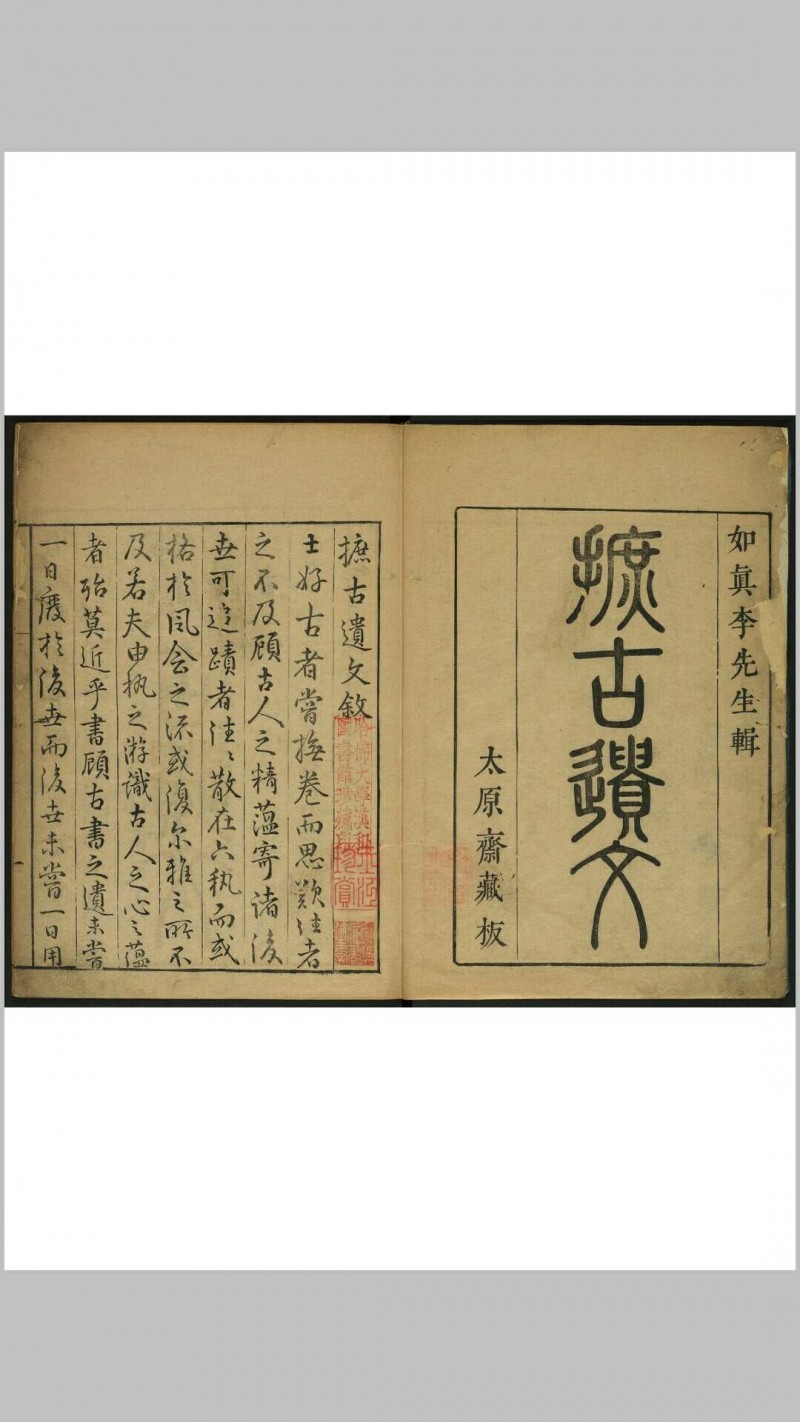 如眞李先生輯
摭古遺文
太原齋藏板
摭古遺文敘
士好古者嘗撫卷而思歎往者
之不及顧古人之精蘊寄諸後
世可追蹟者往〻散在六執而或
格於風會之流或復尔雅之所不
及若夫由執之游識古人之心之蘊
者殆莫近乎書顧古書之遺未嘗
一日廢於後世而後世未嘗一日用